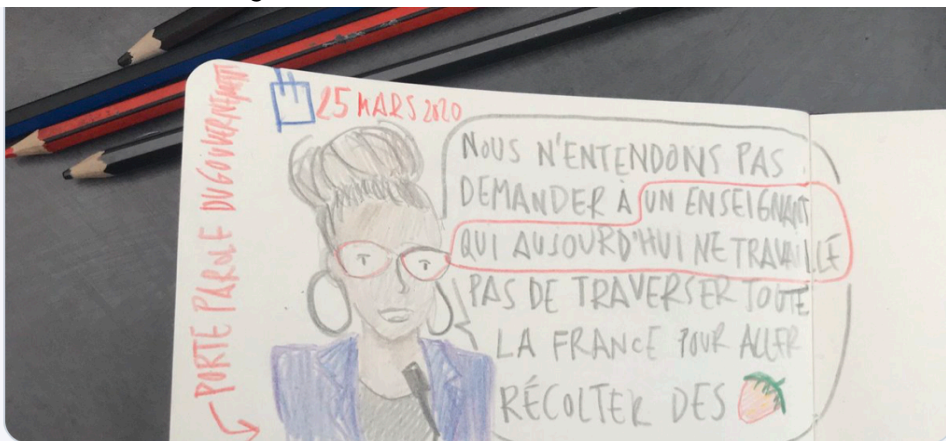 25 MARS 2020
PORTE PAROLE DU GOUVERNEMENT
NOUS N'ENTENDONS PAS
DEMANDER À UN ENSEIGNANT
QUI AUJOURD'HUI NE TRAVAILLE
PAS DE TRAVERSER TOUTE
LA FRANCE POUR ALLER
RÉCOLTER DES